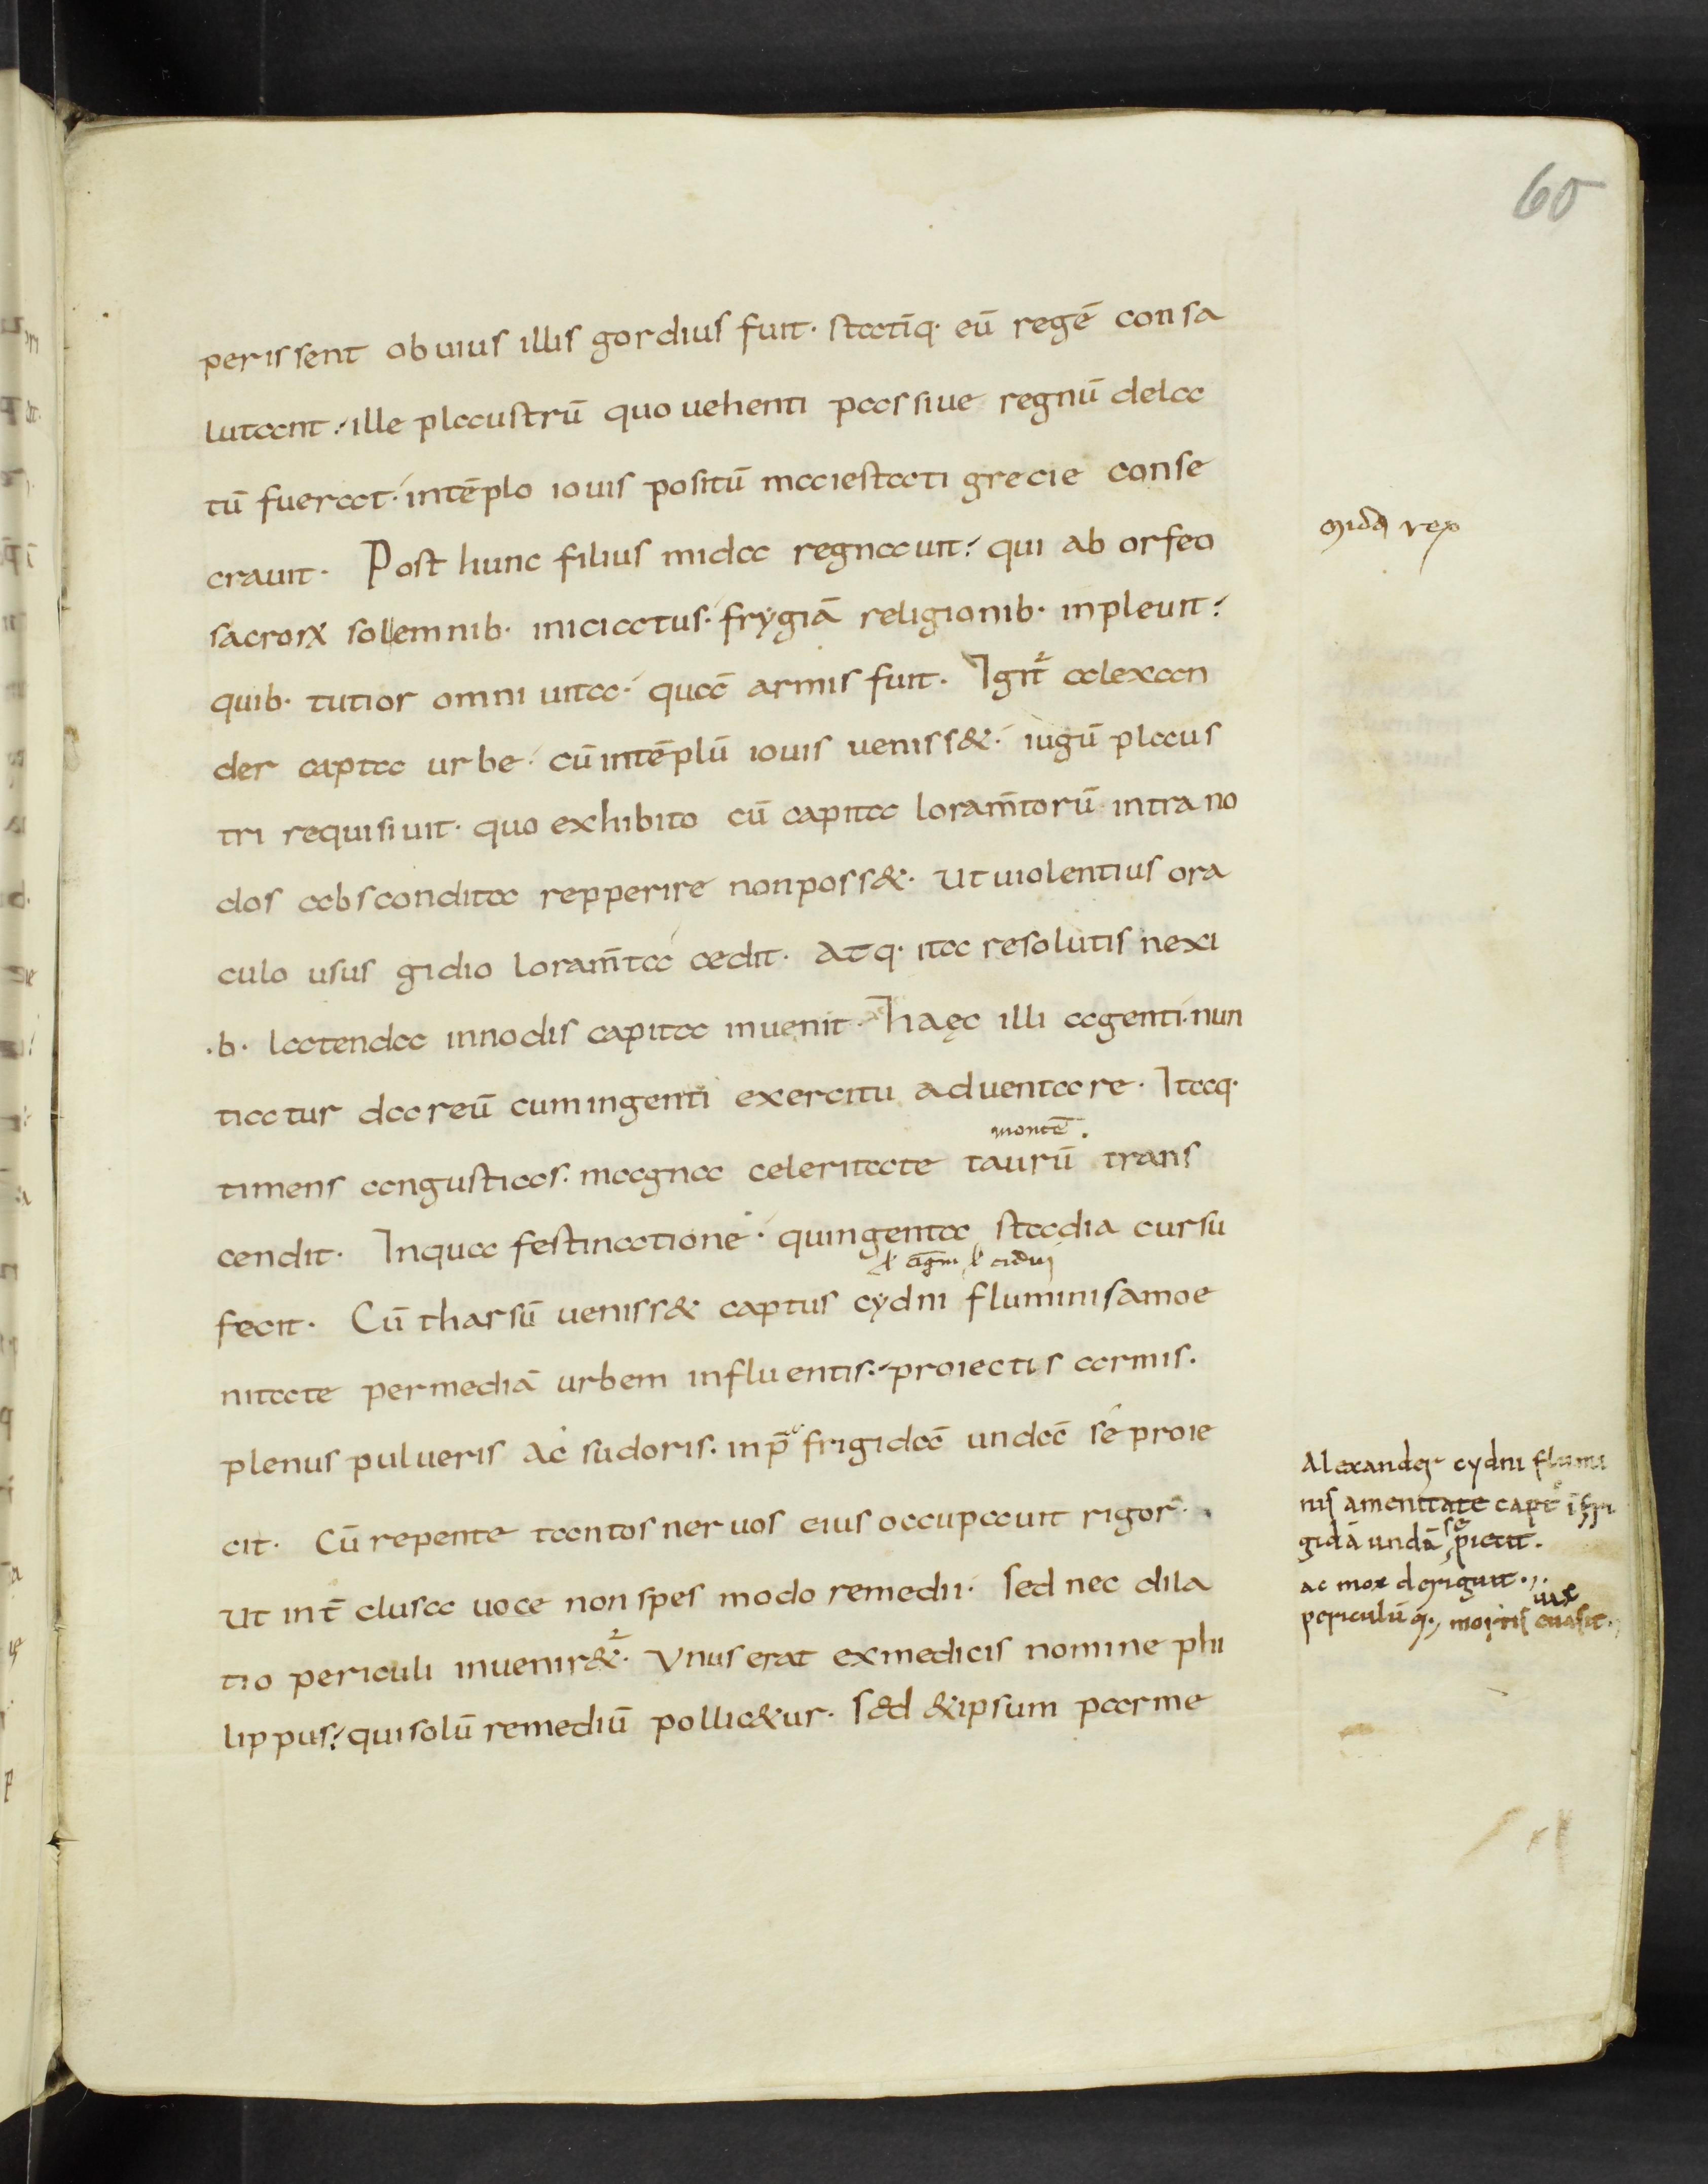 60
perissent obuius illis gordius fuit· statīq· eū regē consa
lutant· ille plaustrū quo uehenti passiue regnū dela
tū fuerat· intēplo iouis positū maiestati grecie conse
crauit· Post hunc filius mida regnauit· qui ab orfeo
mida rex
sacroꝝ sollemnib· iniciatus· frẏgiā religionib· inpleuit·
quib· tutior omni uita· quā armis fuit· Igit² alexan
der capta urbe· cū intēplū iouis uenisset· iugū plaus
tri requisiuit· quo exhibito cū capita loram̄torū intra no
dos abscondita repperire non posset· ut uiolentius ora
culo usus gidio loram̄ta cedit· atq· ita resolutis nexi
·b· latenda innodis capita inuenit· haęc illi agenti· nun
tiatur dareū cum ingenti exercitu aduentare· Itaq·
montē·
timens angustias· magna celeritate taurū trans
cendit· Inqua festinatione· quingenta stadia cursu
fecit· Cū tharsū uenisset captus cẏdni fluminis amoe
nitate permediā urbem influentis· proiectis armis·
plenus pulueris ac sudoris· inp̄frigidā undā se proie
cit· Cū repente tantos neruos eius occupauit rigor·
ut int̄ clusa uoce non spes modo remedii· sed nec dila
tio periculi inueniret²· Vnus erat exmedicis nomine phi
lippus· qui solū remediū pollicetur· sed et ipsum parme
Alexander cydni flumi
nis amenitate capt' ī fri
gidā undā se piecit·
ac mox deriguit·
periculūq· mortis uix euasit·